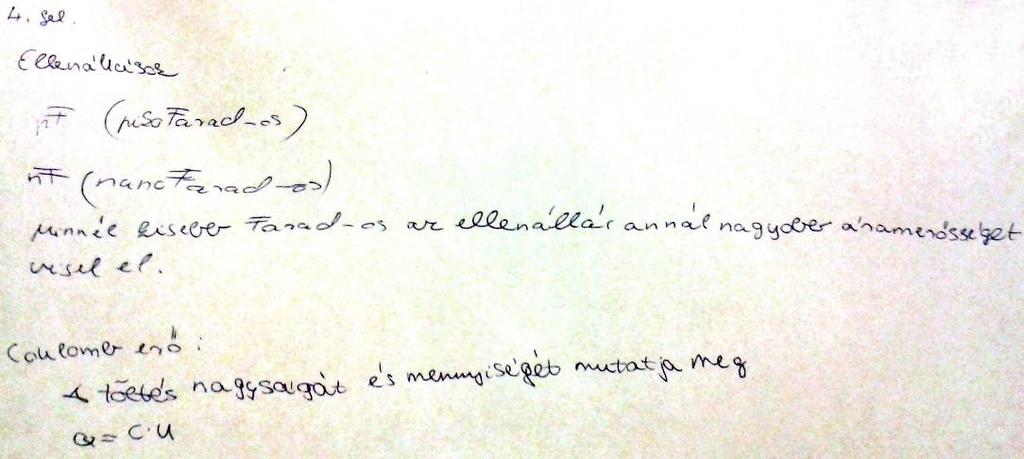 4. fel.
Ellenállások
pF (pikoFarad-os)
nF (nanoFarad-os)
Minnél kisebb Farad-os az ellenállás annál nagyobb áramerősséget
visel el.
Coulomb erő:
A töltés nagyságát és mennyiségét mutatja meg
Q = C·U